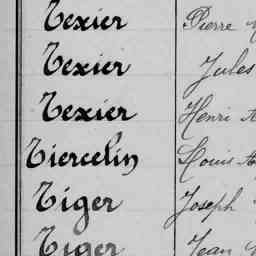 Texier Pierre
Texier Jules
Texier Henri
Tiercelin Louis
Tiger Joseph
Tiger Jean